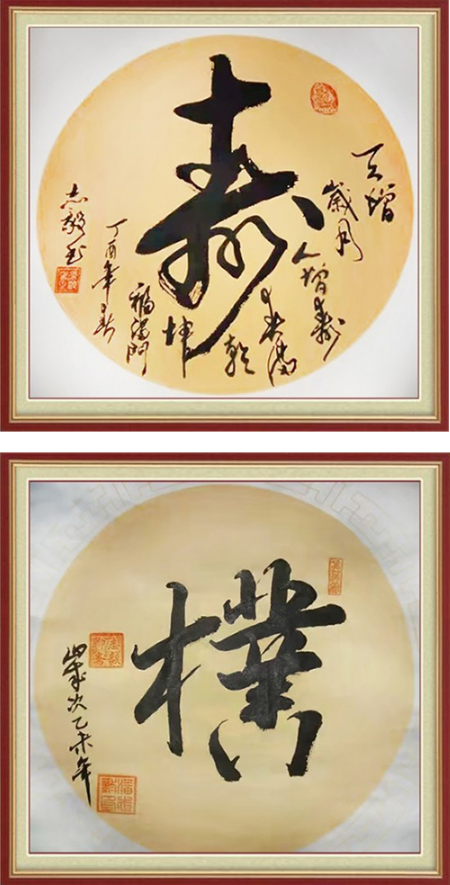 寿
天增
歲月
人增寿
春满
乾
坤
福满门
丁酉年春
志毅书
樸
歲次乙未年